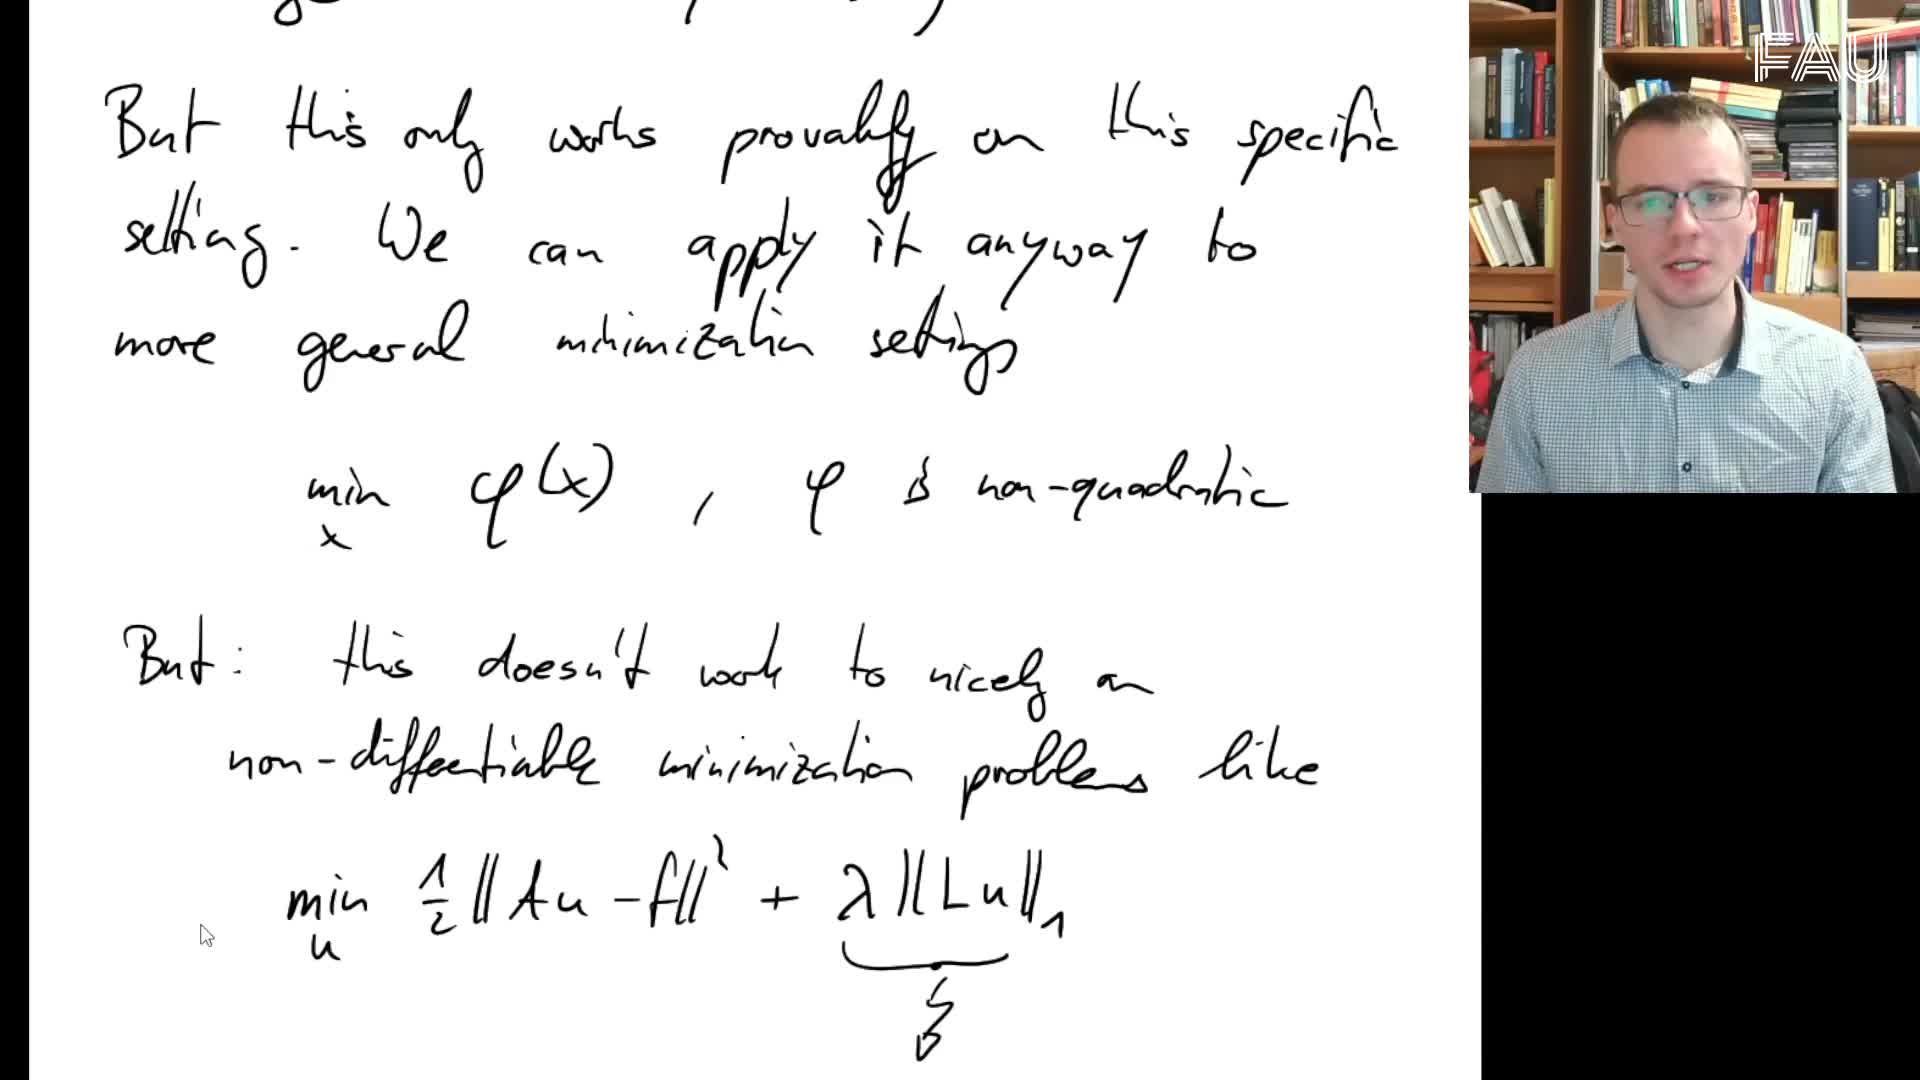 But this only works provably on this specific
setting. We can apply it anyway to
more general minimization settings
min φ(x) , φ is non-quadratic
x
But: this doesn't work to nicely on
non-differentiable minimization problems like
min 1/2 ||Au - f||² + λ||Lu||₁
u
FAU